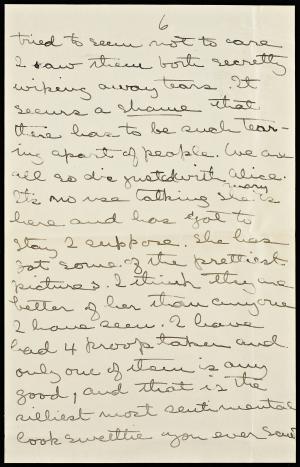 6
tried to seem not to care
I saw them both secretly
wiping away tears. It
seems a shame that
there has to be such tear-
ing apart of people. We are
all so disgusted with Alice.
It's no use talking she is
here and has got to
stay I suppose. She has
got some of the prettiest
pictures. I think they're
better of her than anyone
I have seen. I have
had 4 proofs taken and
only one of item is any
good, and that is the
silliest most sentimental
look you ever saw